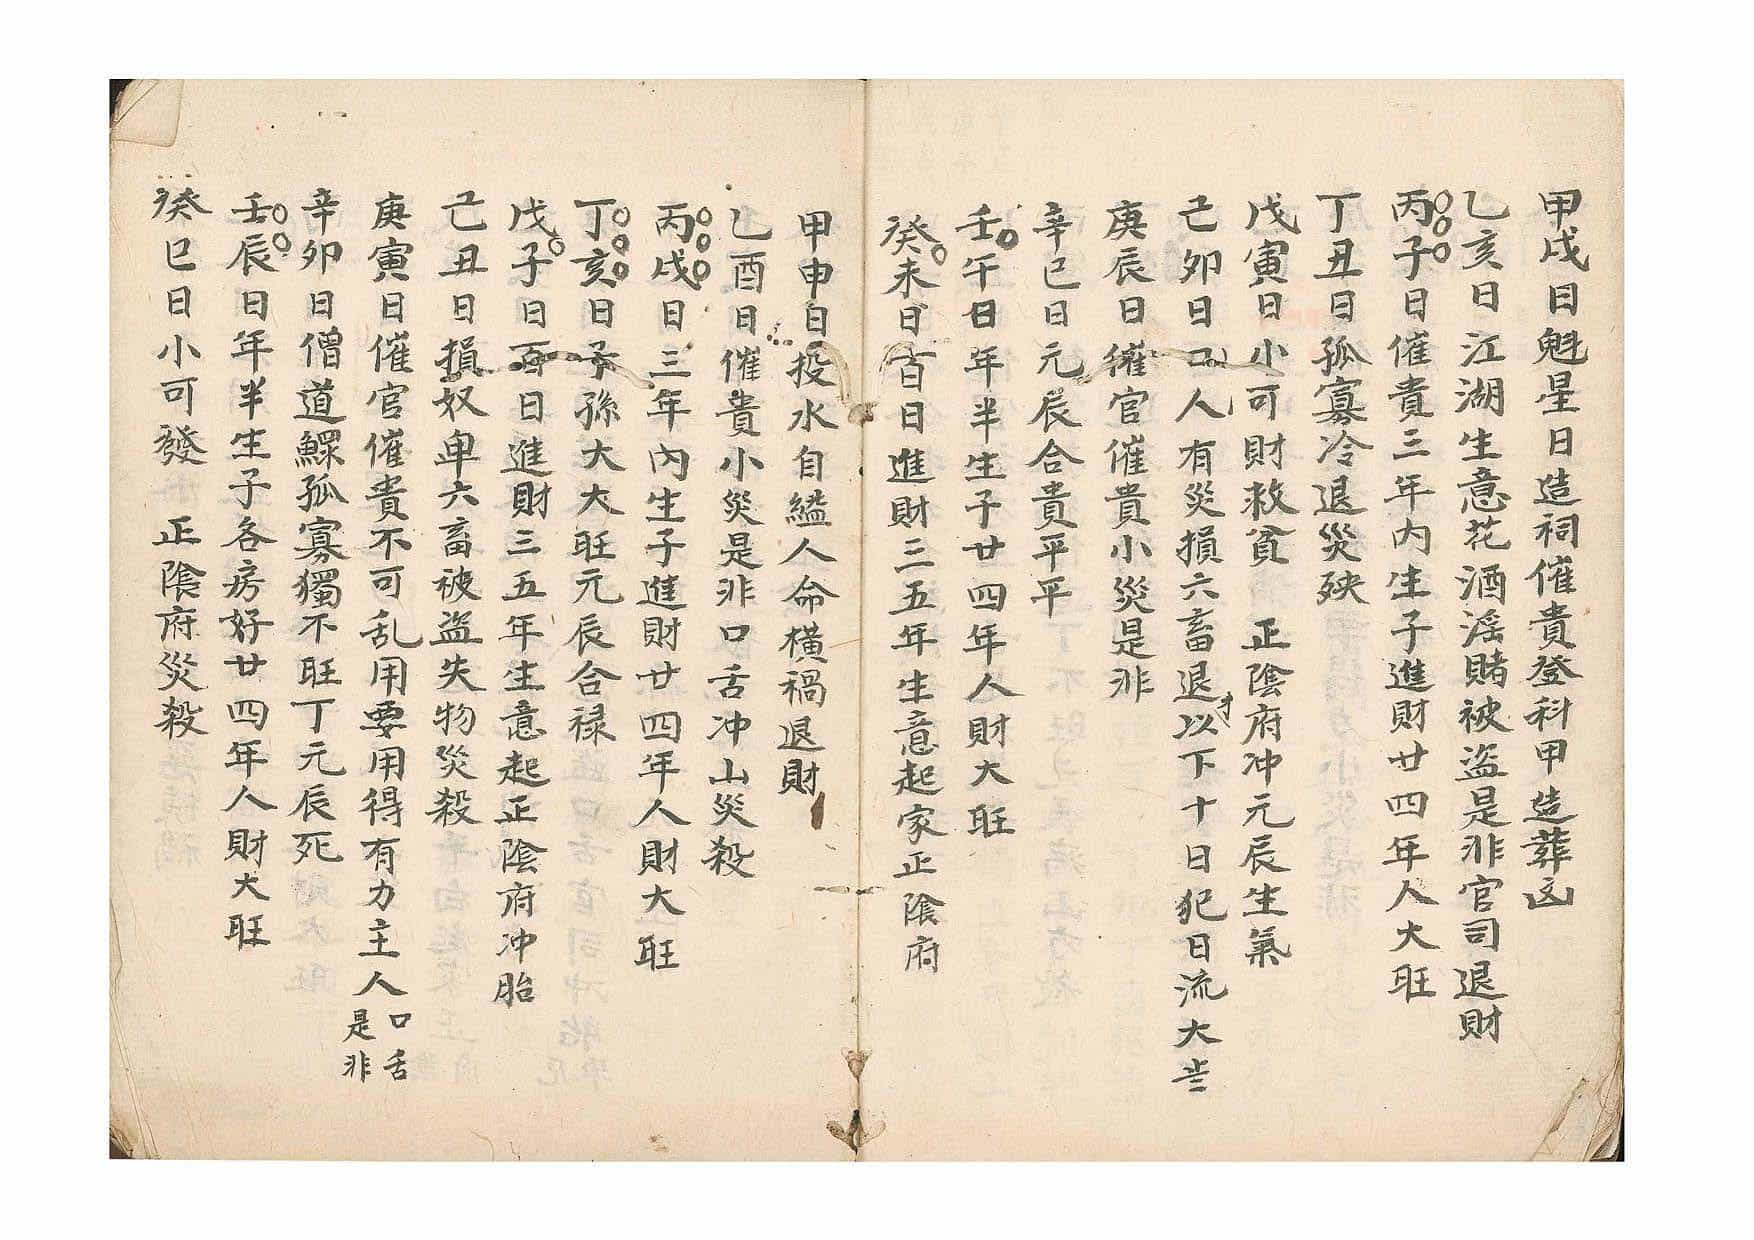 甲戌日魁星日造祠催貴登科甲造葬凶
乙亥日江湖生意花酒滛賭被盜是非官司退財
丙子日催貴三年内生子進財廿四年人大旺
丁丑日孤寡冷退災殃
戊寅日小可財救貧 正陰府冲元辰生氣
己卯日工人有災損六畜退才以下十日犯日流大
庚辰日催官催貴小災是非
辛巳日元辰合貴平平
壬午日年半生子廿四年人財大旺
癸未日百日進財三五年生意起家正陰府
甲申日投水自縊人命橫禍退財
乙酉日催貴小災是非口舌冲山災殺
丙戌日三年內生子進財廿四年人財大旺
丁亥日子孫大大旺元辰合禄
戊子日百日進財三五年生意起正陰府冲胎
己丑日損奴卑六畜被盜失物災殺
庚寅日催官催貴不可乱用要用得有力主人口舌是非
辛卯日僧道鰥孤寡獨不旺丁元辰死
壬辰日年半生子各房好廿四年人財大旺
癸巳日小可發 正陰府災殺